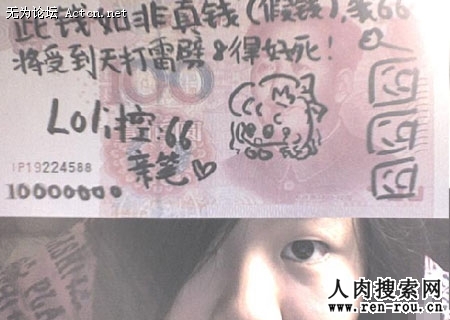 无为论坛 Actcn.net
此钱如非真钱(假钱),我66
将受到天打雷劈8得好死!
Loli控:66
亲笔
IP19224588
10000000
囧囧囧
人肉搜索网
www.ren-rou.cn